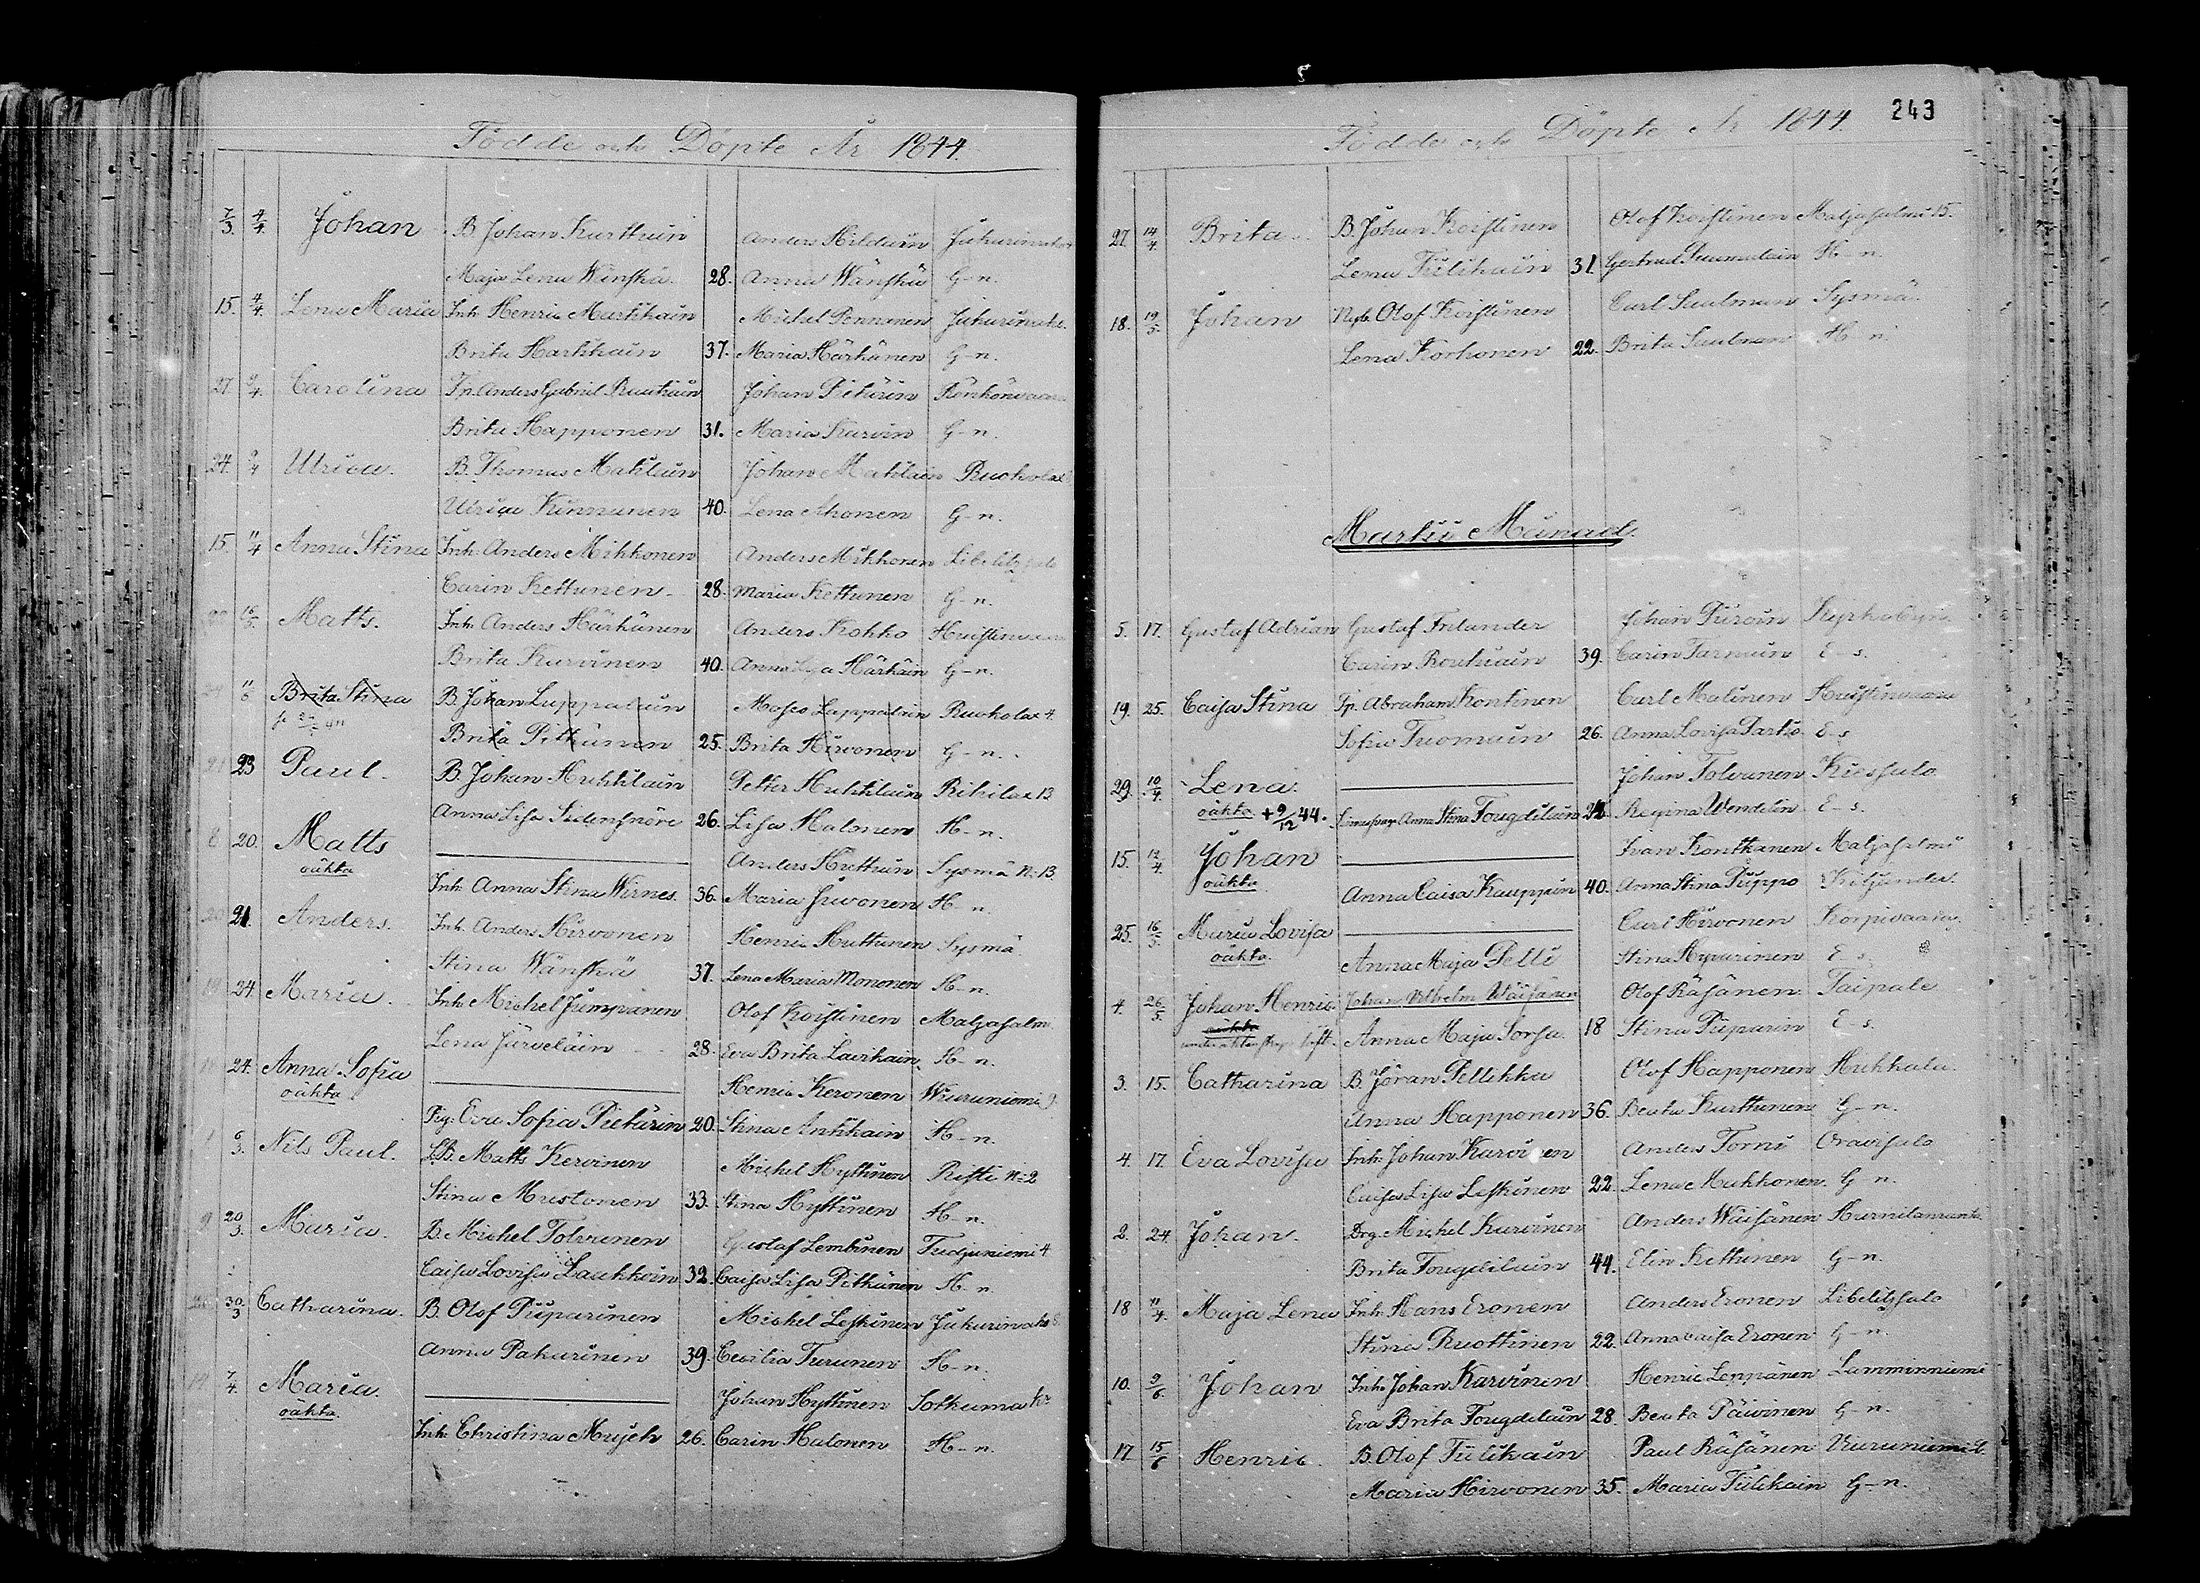 Födde och Döpte År 1844.
7/3. 4/4. Johan B. Johan Kurttuin Anders Hilduin Jukurimaka
Maja Lena Wänskä. 28. Anna Wänskä G-n.
15. 4/4. Lena Maria Inh. Henric Markkain Michel Pennanen Jukurimaka.
Brita Harkkain 37. Maria Härkänen G-n.
27 9/4. Carolina Tp. Anders Gabriel Rautiain Johan Pitkäin Rönkönvaara
Brita Happonen 31. Maria Karvin G-n.
24. 9/4 Ulrica. B. Thomas Matilain Johan Matilain Ruokolax
Ulrica Kinnunen 40. Lena Ahonen G-n.
15. 11/4 Anna Stina Inh. Anders Mihkonen Anders Mihkonen Libelitzsalo
Carin Kettunen. 28. Maria Kettunen G-n.
16/5. Matts. Inh. Anders Härkänen Anders Kokko Huistinvaara
Brita Kurvinen 40. Anna Lisa Härkäin G-n.
11/6 Brita Stina B. Johan Lappalain Moses Lappalain Ruokolax 4.
Brita Pitkänen 25. Brita Hirvonen G-n.
21 23 Paul. B. Johan Huhtilain Petter Huhtilain Rikilax 13
Anna Lisa Sidensnöre 26. Lisa Malmen H-n.
8 20. Matts Anders Huttuin Sysmä N: 13.
oäkta Inh. Anna Stina Wirnes. 36. Maria Juvonen H-n.
20 21. Anders. Inh. Anders Hirvonen Henric Huttunen Sysmä
Stina Wänskä 37. Lena Maria Mononen H-n.
24. Maria. Inh. Michel Jumpanen Olof Koistinen Maljasalmi
Lena Järveläin 28. Eva Brita Lavikain. H-n.
24. Anna Sofia Henric Keronen Wuruniemi 9.
oäkta Pig. Eva Sofia Pietarin 20. Stina Antikain H-n.
1 6/3. Nils Paul. LB. Matts Kervinen Michel Hyttinen Risti N: 2
Stina Mustonen 33. Stina Hyttinen H-n.
9 20/3. Maria. B. Michel Tolvanen Gustaf Lembinen Tudjuniemi 4
Caisa Lovisa Laukkain 32. Caisa Lisa Pitkänen H-n.
30/3 Catharina. B. Olof Piiparinen Michel Leskinen Jukurimaka 8.
Anna Pakarinen 39. Cecilia Turunen H-n.
14 7/4. Maria. Johan Hyttinen Sotkuma
oäkta. Inh. Christina Mujeh 26. Carin Hulonen H-n.
243
Födde och Döpte År 1844.
27. 14/4. Brita. B. Johan Koistinen Olof Koistinen Maljasalmi 15.
Lena Tiilikain 31. Gertrud Tuomalain H-n.
18. 19/5. Johan Nyb. Olof Koistinen Carl Saulman Sysmä.
Lena Korhonen 22. Brita Saulman H-n.
Martii Månad.
5. 17. Gustaf Adrian Gustaf Frilander Johan Piiroin Kyrkobyn.
Carin Boutiain 39. Carin Tarnain E-s.
19. 25. Caisa Stina Tp. Abraham Kontinen Carl Malinen Huistinvaara
Sofia Tuomain 26. Anna Lovisa Partio E-s
29. 10/4. Lena. Johan Tolvanen Kiessalo
oäkta +9/12 44. Anna Stina Fougdilain 24. Regina Wendelin E-s.
15. 12/4. Johan Ivan Konttanen Maljasalmi
oäkta. Anna Caisa Kauppin 40. Anna Stina Piippo Kitjändi.
25. 16/5. Maria Lovisa Carl Hirvonen Korpivaara
oäkta. Anna Maja Pelli Stina Hyvärinen E-s.
4. 26/5. Johan Henric Johan Wilhelm Wäisänen Olof Räsänen Taipale
oäkta Anna Maja Sorsa. 18 Stina Piiparin E-s.
3. 15. Catharina B. Jöran Pellikka Olof Happonen Hukkala.
Anna Happonen 36. Beata Kurttunen G-n.
4. 17. Eva Lovisa Inh. Johan Karvinen Anders Torni Oravisalo
Caisa Lisa Leskinen 22. Lena Makkonen. G-n.
2. 24. Johan. Drg. Michel Kurvinen Anders Wäisänen Hurnilanranta
Brita Fougdilain 44. Elin Kettunen G-n.
18 11/4. Maja Lena Inh. Hans Eronen Anders Eronen Libelitzsalo
Stina Ruottinen 22. Anna Caisa Eronen G-n.
10. 9/6. Johan Inh. Johan Karvinen Henric Leppänen Lamminniemi
Eva Brita Fougdilain 28. Beata Päivinen G-n.
17. 15/6 Henric. B. Olof Tiilikain Paul Räsänen Wuruniemi
Maria Hirvonen 35. Maria Tiilikain G-n.